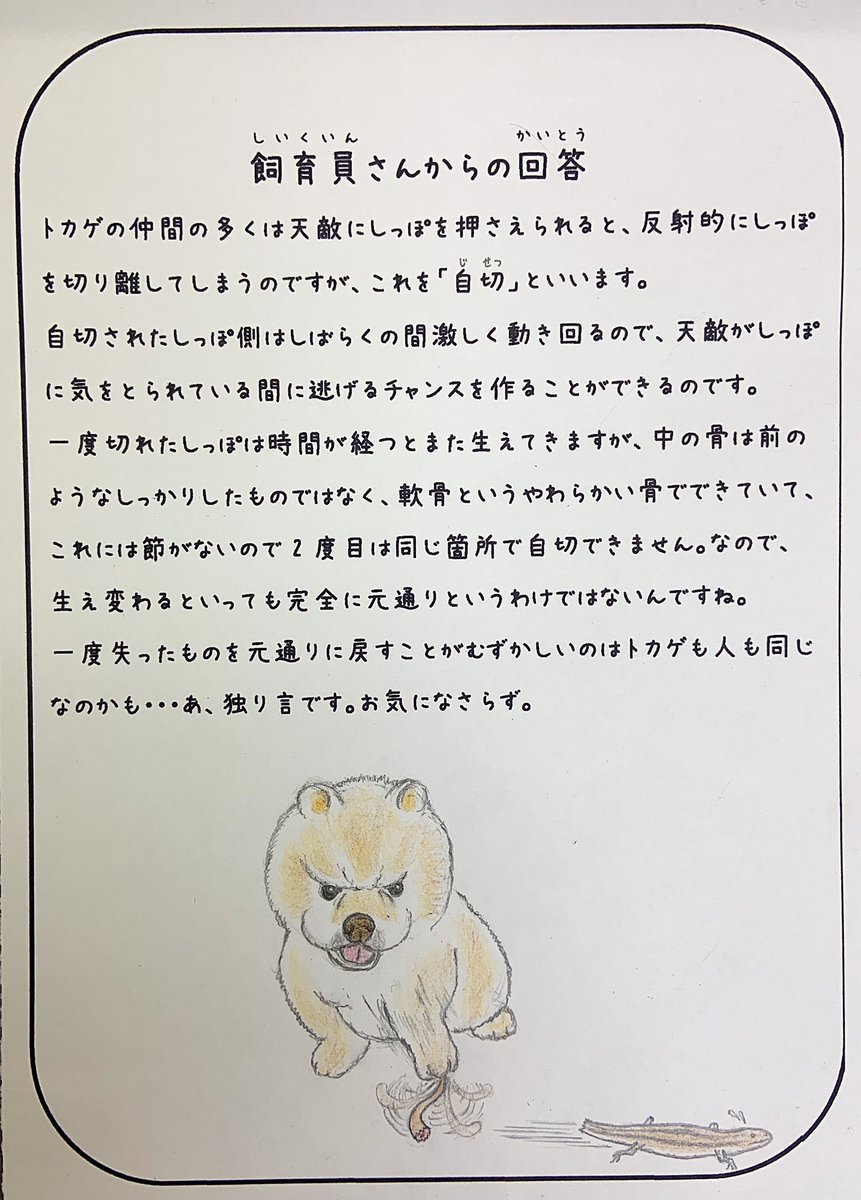 しいくいん かいとう
飼育員さんからの回答
トカゲの仲間の多くは天敵にしっぽを押さえられると、反射的にしっぽ
じ せつ
を切り離してしまうのですが、これを「自切」といいます。
自切されたしっぽ側はしばらくの間激しく動き回るので、天敵がしっぽ
に気をとられている間に逃げるチャンスを作ることができるのです。
一度切れたしっぽは時間が経つとまた生えてきますが、中の骨は前の
ようなしっかりしたものではなく、軟骨というやわらかい骨でできていて、
これには節がないので2度目は同じ箇所で自切できません。なので、
生え変わるといっても完全に元通りというわけではないんですね。
一度失ったものを元通りに戻すことがむずかしいのはトカゲも人も同じ
なのかも・・・あ、独り言です。お気になさらず。